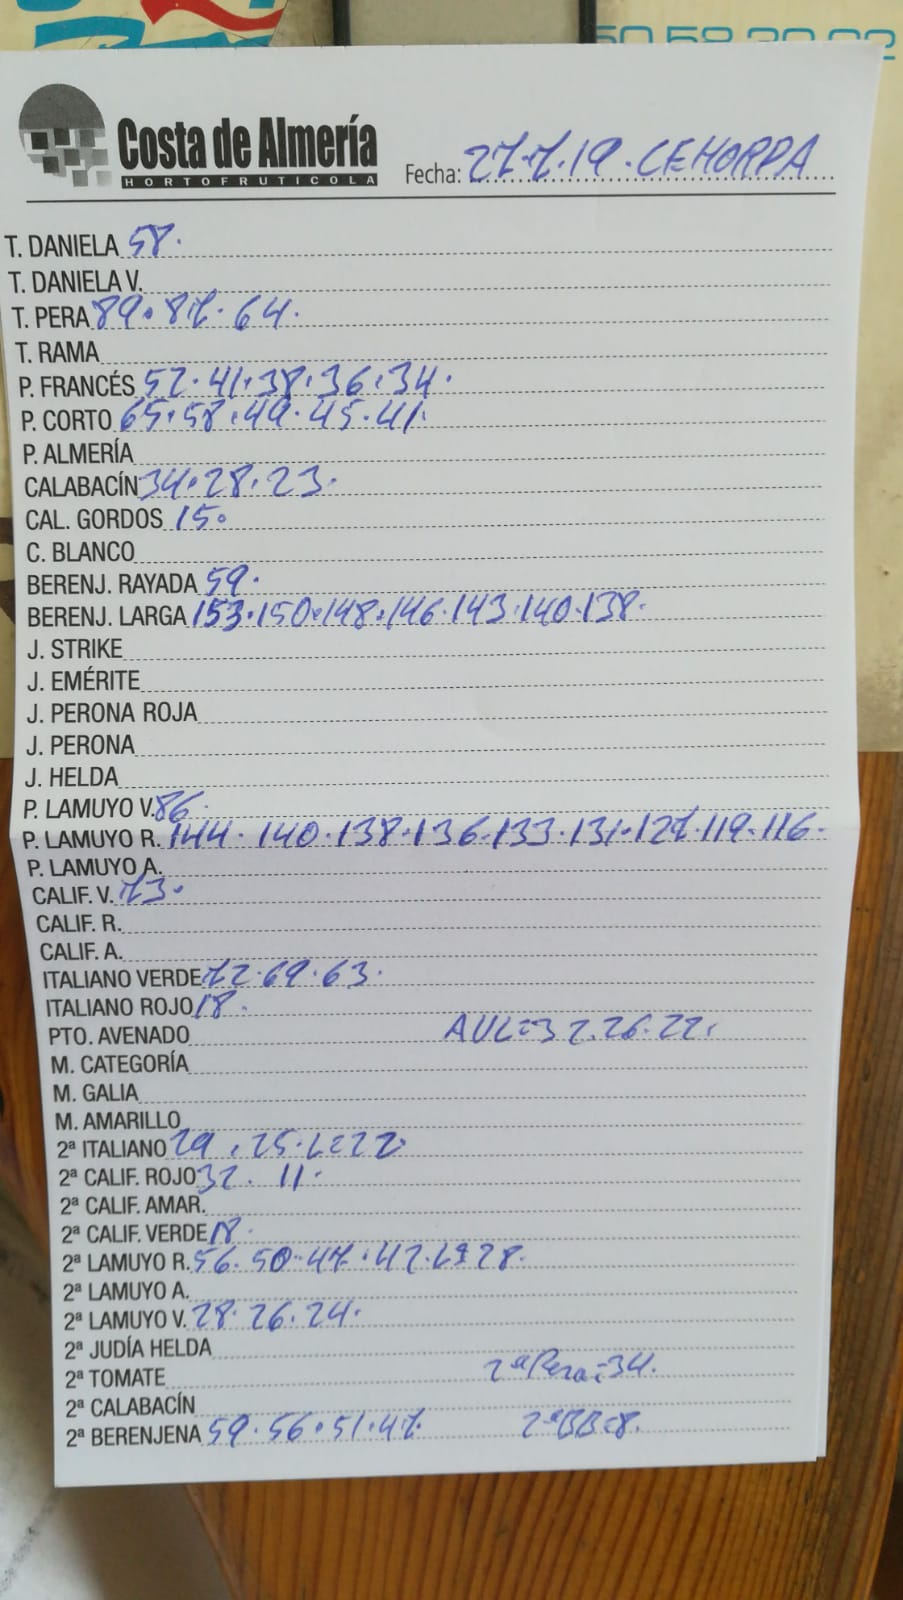 50 58 20 02
Costa de Almería
HORTOFRUTICOLA
Fecha: 27.7.19. CEHORPA
T. DANIELA 58.
T. DANIELA V.
T. PERA 89. 87. 64.
T. RAMA
P. FRANCÉS 52. 41. 38. 36. 34.
P. CORTO 65. 58. 49. 45. 41.
P. ALMERÍA
CALABACÍN 34. 28. 23.
CAL. GORDOS 15.
C. BLANCO
BERENJ. RAYADA 59.
BERENJ. LARGA 153. 150. 148. 146. 143. 140. 138.
J. STRIKE
J. EMÉRITE
J. PERONA ROJA
J. PERONA
J. HELDA
P. LAMUYO V. 86.
P. LAMUYO R. 144. 140. 138. 136. 133. 131. 127. 119. 116.
P. LAMUYO A.
CALIF. V. 73.
CALIF. R.
CALIF. A.
ITALIANO VERDE 72. 69. 63.
ITALIANO ROJO 18.
PTO. AVENADO AVL=32. 26. 22.
M. CATEGORÍA
M. GALIA
M. AMARILLO
2ª ITALIANO 29. 25. L=22.
2ª CALIF. ROJO 32. 11.
2ª CALIF. AMAR.
2ª CALIF. VERDE 18.
2ª LAMUYO R. 56. 50. 47. 42. L=28.
2ª LAMUYO A.
2ª LAMUYO V. 28. 26. 24.
2ª JUDÍA HELDA
2ª TOMATE 2ª Pera=34.
2ª CALABACÍN
2ª BERENJENA 59. 56. 51. 47. 2ªBB=8.